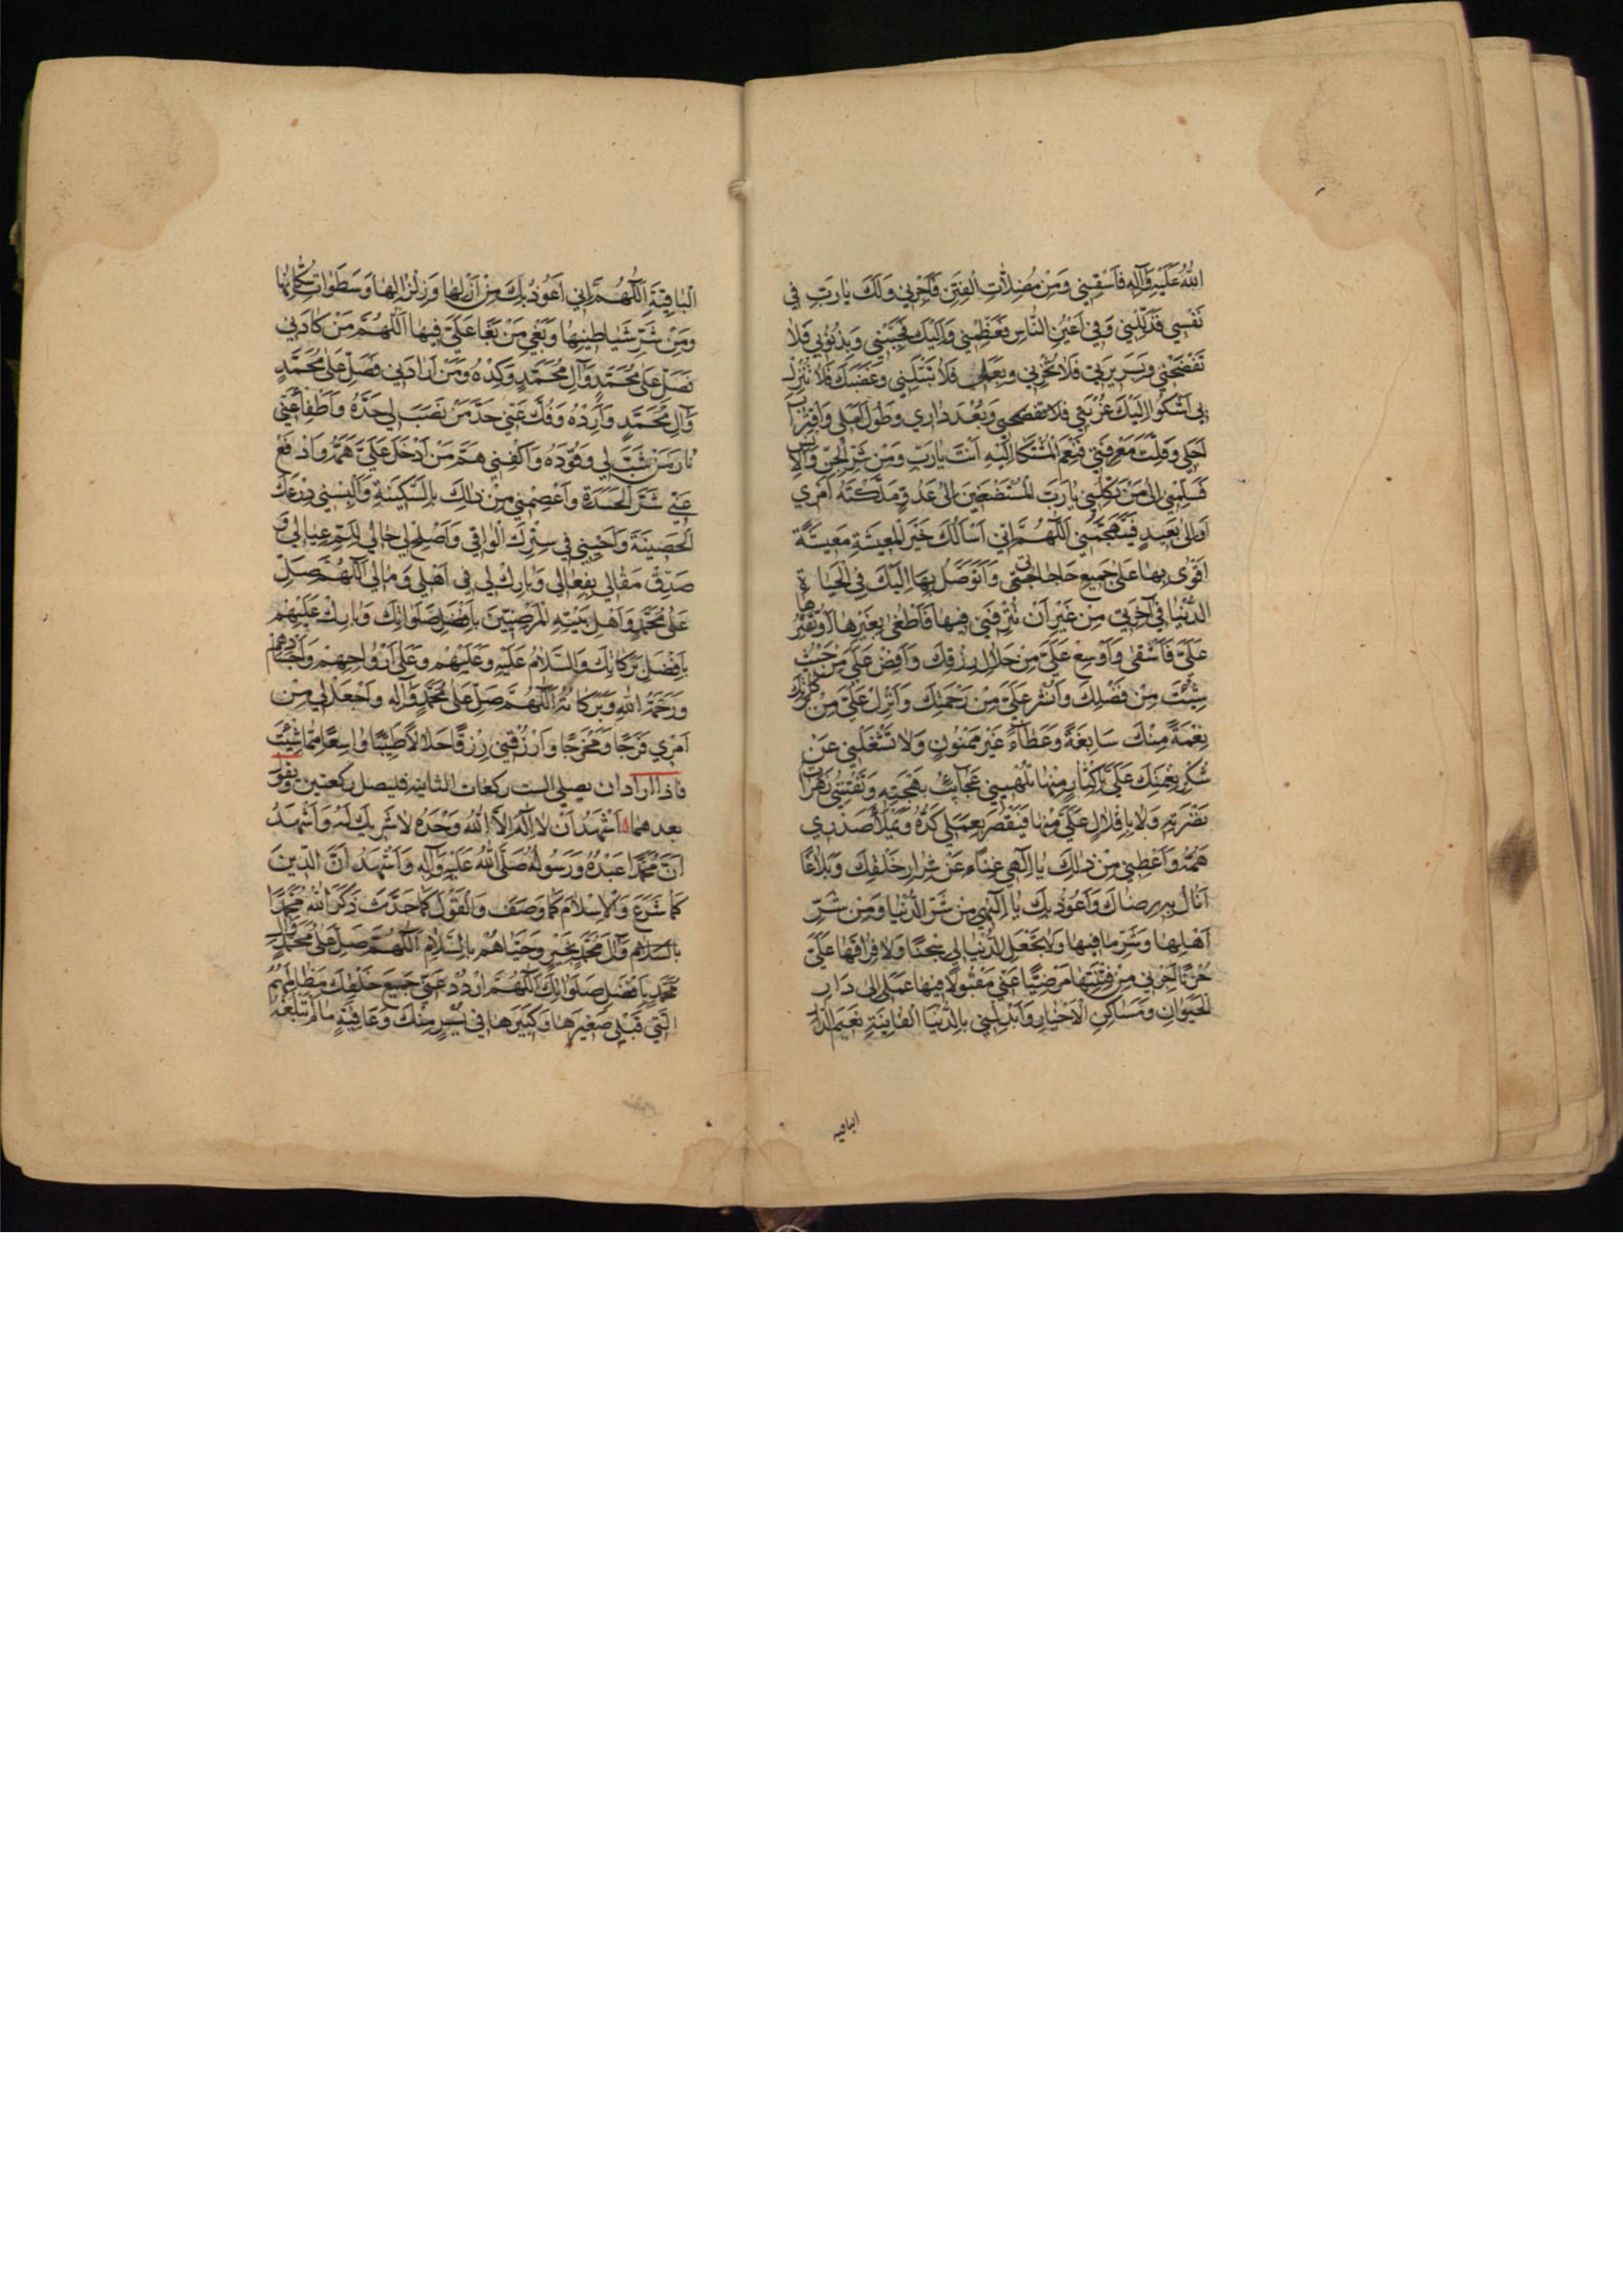 اللهُ عَلَيْهِ وَآلِهِ فَاَسْقِنِي وَمِنْ مُضِلاَّتِ الْفِتَنِ فَاَجِرْنِي وَلَكَ يَا رَبِّ فِي
نَفْسِي فَذَلِّلْنِي وَفِي اَعْيُنِ النَّاسِ فَعَظِّمْنِي وَاِلَيْكَ فَحَبِّبْنِي وَبِذُنُوبِي فَلاٰ
تَفْضَحْنِي وَبِسَرِيرَتِي فَلاٰ تُخْزِنِي وَبِعَمَلِي فَلاٰ تَبْتَلِنِي وَغَضَبَكَ فَلاٰ تُنْزِلْ
بِي اَشْكُو اِلَيْكَ غُرْبَتِي وَبُعْدَ دَارِي وَطُولَ اَمَلِي وَاقْتِرَابَ
اَجَلِي وَقِلَّةَ مَعْرِفَتِي فَنِعْمَ الْمُشْتَكَا اِلَيْهِ اَنْتَ يَا رَبِّ وَمِنْ شَرِّ الْجِنِّ وَالْاِنْسِ
فَسَلِّمْنِي اِلىٰ مَنْ تَكِلُنِي يَا رَبَّ الْمُسْتَضْعَفِينَ اِلىٰ عَدُوٍّ مَلَّكْتَهُ اَمْرِي
اَوْ اِلىٰ بَعِيدٍ فَيَتَجَهَّمُنِي اَللّٰهُمَّ اِنِّي اَسْاَلُكَ خَيْرَ الْمَعِيشَةِ مَعِيشَةً
اَقْوىٰ بِهَا عَلىٰ جَمِيعِ حَاجَاتِي وَاَتَوَصَّلُ بِهَا اِلَيْكَ فِي الْحَيَاةِ
الدُّنْيَا فِي آخِرَتِي مِنْ غَيْرِ اَنْ تُتْرِفَنِي فِيهَا فَاَطْغىٰ اَوْ تُقَتِّرَهَا
عَلَيَّ فَاَشْقىٰ وَاَوْسِعْ عَلَيَّ مِنْ حَلاٰلِ رِزْقِكَ وَاَفِضْ عَلَيَّ مِنْ حَيْثُ
شِئْتَ مِنْ فَضْلِكَ وَانْشُرْ عَلَيَّ مِنْ رَحْمَتِكَ وَاَنْزِلْ عَلَيَّ مِنْ
نِعْمَةً مِنْكَ سَابِغَةً وَعَطَآءً غَيْرَ مَمْنُونٍ وَلاٰ تَشْغَلْنِي عَنْ
شُكْرِ نِعْمَتِكَ عَلَيَّ بِاِكْثَارٍ مِنْهَا تُلْهِيْنِي عَجَائِبُ بَهْجَتِهِ وَتَفْتِنُنِي زَهَرَاتُ
نَضْرَتِهِ وَلاٰ بِاِقْلاٰلٍ عَلَيَّ مِنْهَا فَيَقْصُرَ بِعَمَلِي كَدُّهُ وَيَمْلَأُ صَدْرِي
هَمُّهُ وَاَعْطِنِي مِنْ ذٰلِكَ يَا اِلٰهِي غِنَاءً عَنْ شِرَارِ خَلْقِكَ وَبَلاٰغًا
اَنَالُ بِهِ رِضَاكَ وَاَعُوذُ بِكَ يَا اِلٰهِي مِنْ شَرِّ الدُّنْيَا وَمِنْ شَرِّ
اَهْلِهَا وَشَرِّ مَا فِيهَا وَلاٰ تَجْعَلِ الدُّنْيَا لِي سِجْنًا وَلاٰ فِرَاقَهَا عَلَيَّ
حُزْنًا اَجِرْنِي مِنْ فِتْنَتِهَا مَرْضِيًّا عَنِّي مَقْبُولاً فِيهَا عَمَلِي اِلىٰ دَارِ
الْحَيَوَانِ وَمَسَاكِنِ الْاَخْيَارِ وَاَبْدِلْنِي بِالدُّنْيَا الْفَانِيَةِ نَعِيمَ الدَّارِ
الباقيه
الْبَاقِيَةِ اَللّٰهُمَّ اِنِّي اَعُوذُ بِكَ مِنْ اَزْلِهَا وَزِلْزَالِهَا وَسَطَوَاتِ
وَمِنْ شَرِّ شَيَاطِينِهَا وَبَغْيِ مَنْ بَغَا عَلَيَّ فِيهَا اَللّٰهُمَّ مَنْ كَادَنِي
فَصَلِّ عَلىٰ مُحَمَّدٍ وَآلِ مُحَمَّدٍ وَكِدْهُ وَمَنْ اَرَادَنِي فَصَلِّ عَلىٰ مُحَمَّدٍ
وَآلِ مُحَمَّدٍ وَاَرِدْهُ وَفُلَّ عَنِّي حَدَّ مَنْ نَصَبَ لِي حَدَّهُ وَاَطْفِأْ عَنِّي
نَارَ مَنْ شَبَّ لِي وَقُودَهُ وَاكْفِنِي هَمَّ مَنْ اَدْخَلَ عَلَيَّ هَمَّهُ وَادْفَعْ
عَنِّي شَرَّ الْحَسَدَةِ وَاعْصِمْنِي مِنْ ذٰلِكَ بِالسَّكِينَةِ وَاَلْبِسْنِي دِرْعَكَ
الْحَصِينَةَ وَاَحْيِنِي فِي سِتْرِكَ الْوَاقِي وَاَصْلِحْ لِي حَالِي عِيَالِي وَ
صَدِّقْ مَقَالِي بِفِعَالِي وَبَارِكْ لِي فِي اَهْلِي وَمَالِي اَللّٰهُمَّ صَلِّ
عَلىٰ مُحَمَّدٍ وَاَهْلِ بَيْتِهِ الْمَرْضِيِّينَ بِاَفْضَلِ صَلَوَاتِكَ وَبَارِكْ عَلَيْهِمْ
بِاَفْضَلِ بَرَكَاتِكَ وَالسَّلاٰمُ عَلَيْهِ وَعَلَيْهِمْ وَعَلىٰ اَرْوَاحِهِمْ وَاَجْسَادِهِمْ
وَرَحْمَةُ اللهِ وَبَرَكَاتُهُ اَللّٰهُمَّ صَلِّ عَلىٰ مُحَمَّدٍ وَآلِهِ وَاجْعَلْ لِي مِنْ
اَمْرِي فَرَجًا وَمَخْرَجًا وَارْزُقْنِي رِزْقًا حَلاٰلاً طَيِّبًا وَاسِعًا مِمَّا شِئْتَ
فاذا اراد ان يصلي الست ركعات الثانيه فليصل ركعتين ويقول
بعدهما اَشْهَدُ اَنْ لاٰ اِلٰهَ اِلاَّ اللهُ وَحْدَهُ لاٰ شَرِيكَ لَهُ وَاَشْهَدُ
اَنَّ مُحَمَّدًا عَبْدُهُ وَرَسُولُهُ صَلَّى اللهُ عَلَيْهِ وَآلِهِ وَاَشْهَدُ اَنَّ الدِّينَ
كَمَا شَرَعَ وَالْاِسْلاٰمَ كَمَا وَصَفَ وَالْقَوْلَ كَمَا حَدَّثَ ذَكَرَ اللهُ مُحَمَّدًا
وَآلَ مُحَمَّدٍ بِخَيْرٍ وَحَيَّاهُمْ بِالسَّلاٰمِ اَللّٰهُمَّ صَلِّ عَلىٰ مُحَمَّدٍ وَآلِ
مُحَمَّدٍ بِاَفْضَلِ صَلَوَاتِكَ اَللّٰهُمَّ ارْدُدْ عَنِّي جَمِيعَ خَلْقِكَ مَظَالِمَهُمُ
الَّتِي قِبَلِي صَغِيرَهَا وَكَبِيرَهَا فِي يُسْرٍ مِنْكَ وَعَافِيَةٍ مَا لَمْ تَبْلُغْهُ